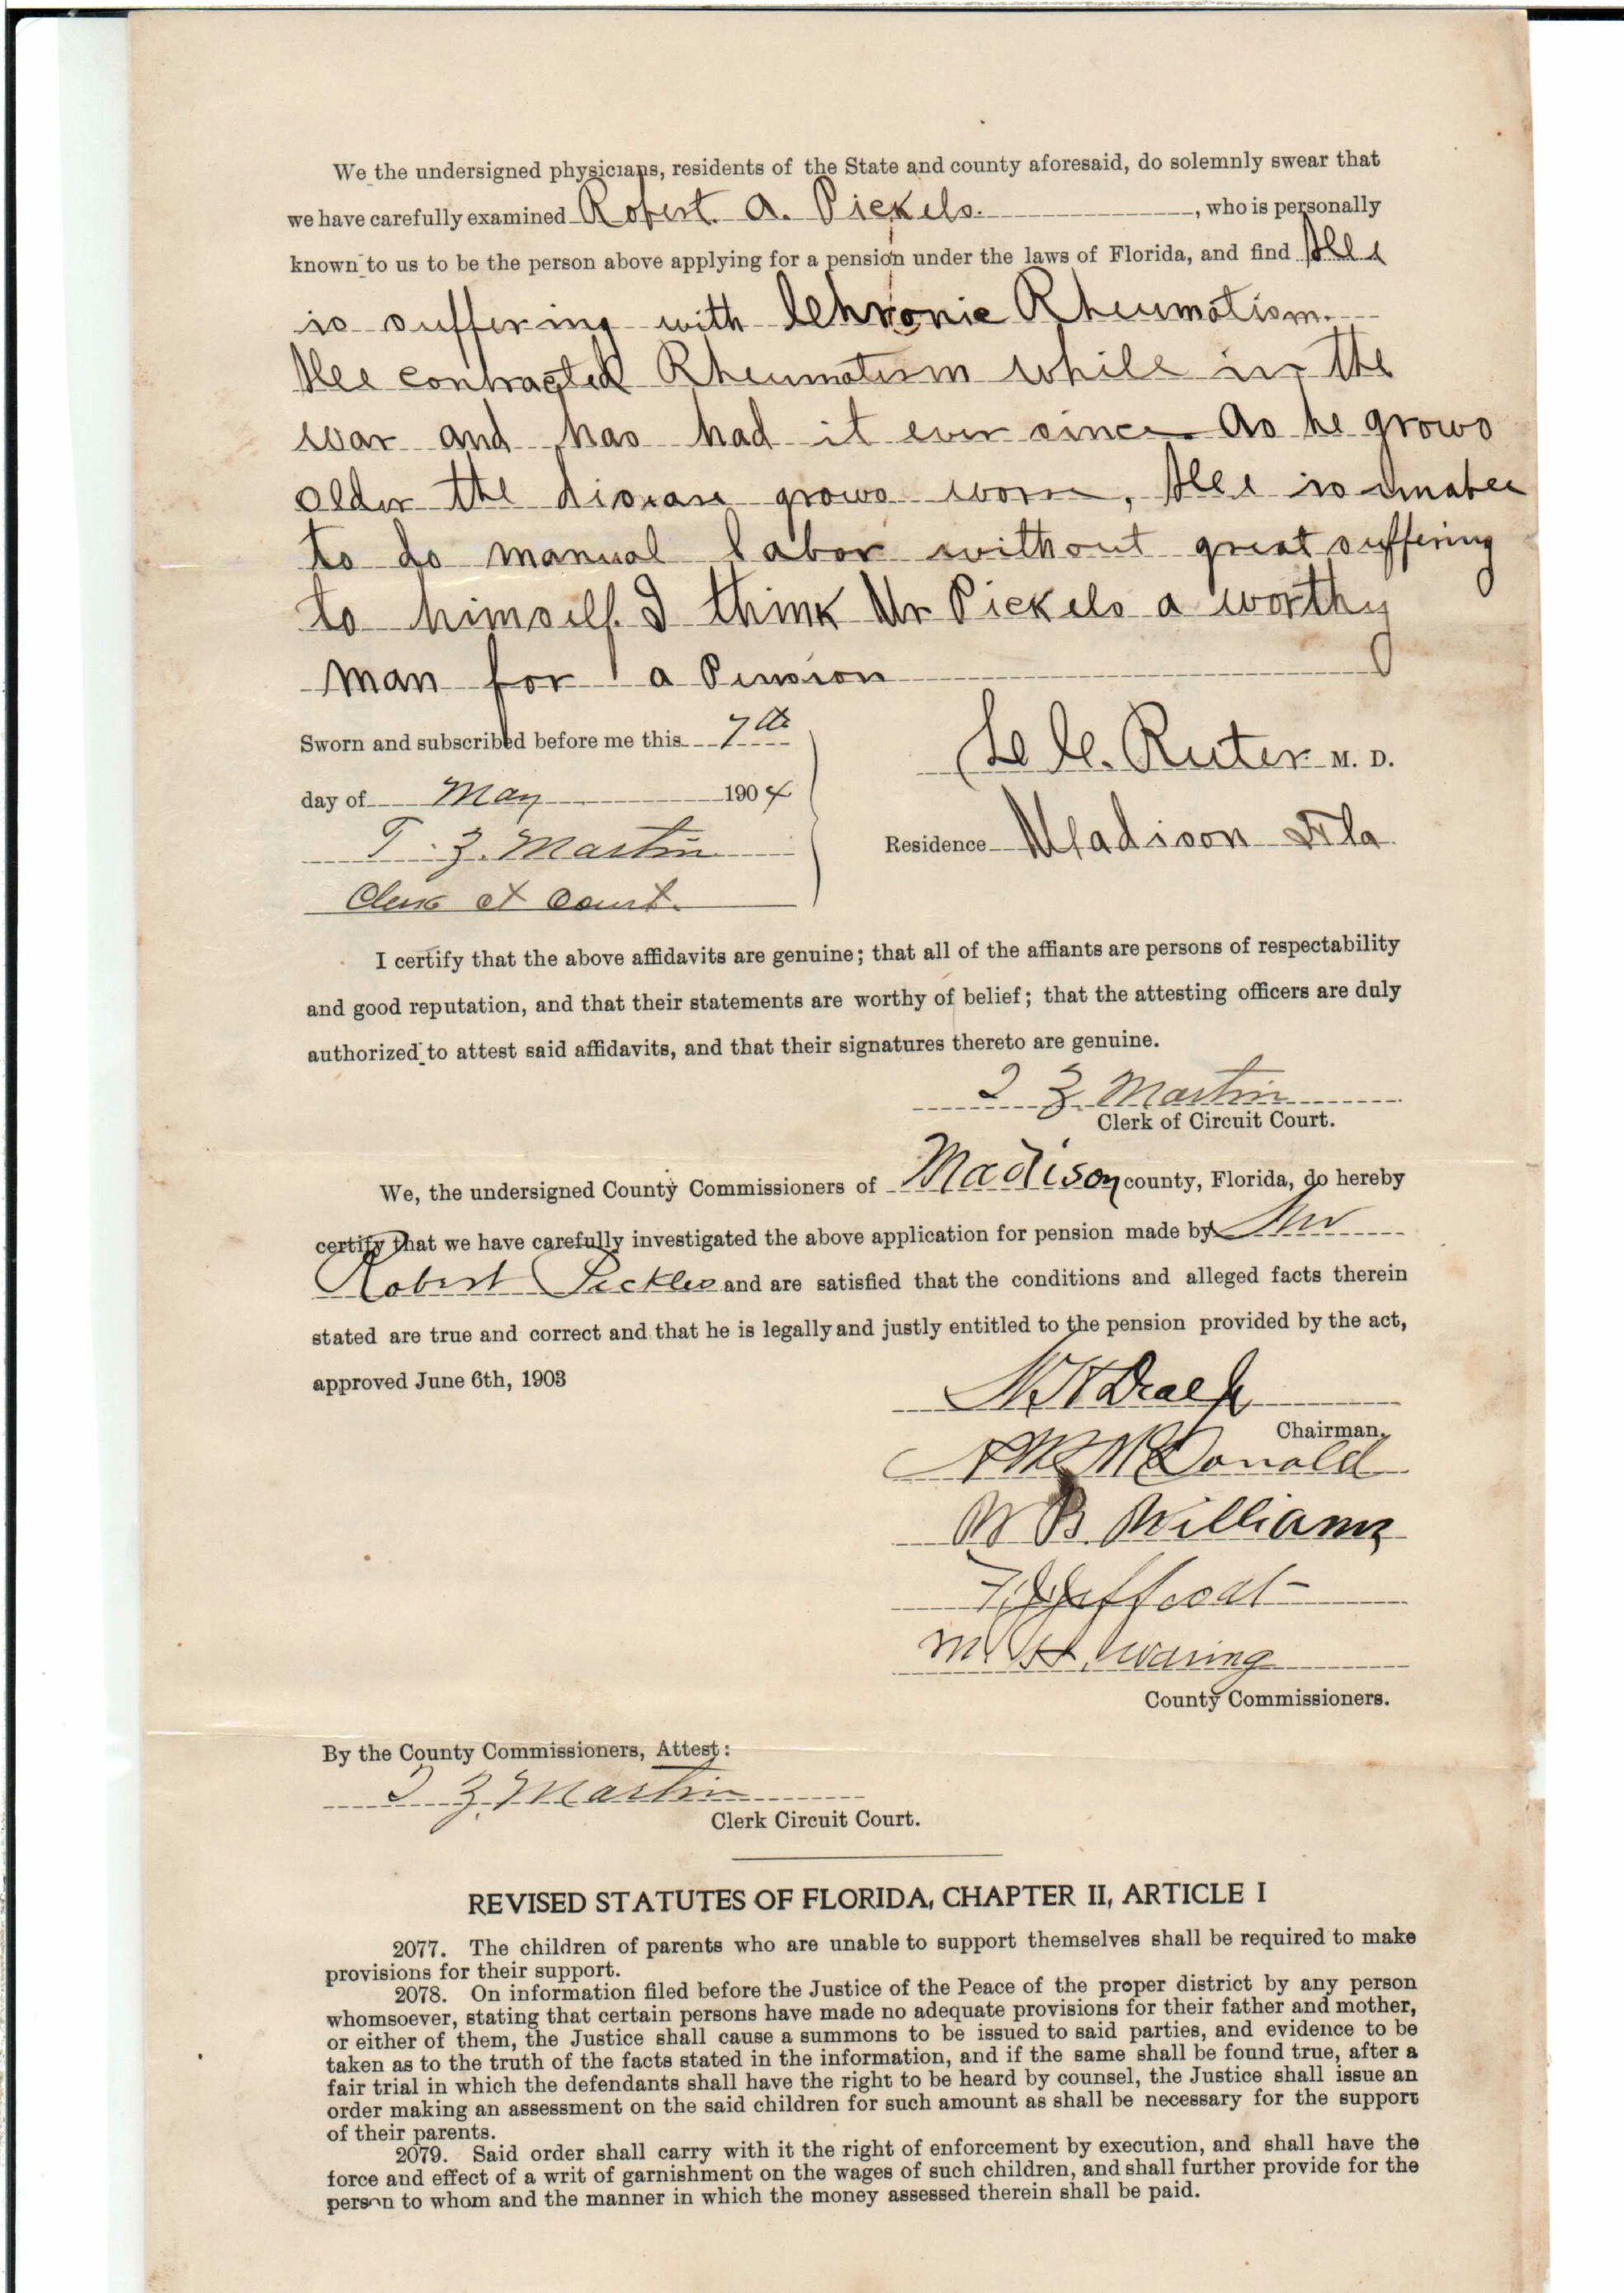 We the undersigned physicians, residents of the State and county aforesaid, do solemnly swear that
we have carefully examined Robert A. Pickels. , who is personally
known to us to be the person above applying for a pension under the laws of Florida, and find Hee
is suffering with Chronic Rheumatism.
Hee contracted Rheumatism while in the
war and has had it ever since. As he grows
older the disease grows worse, Hee is unable
to do manual labor without great suffering
to himself. I think Mr Pickels a worthy
man for a Pension
Sworn and subscribed before me this 7th
day of May 1904
T. Z. Martin
Clerk Ct Court.
Ruter M. D.
Residence Madison Fla
I certify that the above affidavits are genuine; that all of the affiants are persons of respectability
and good reputation, and that their statements are worthy of belief; that the attesting officers are duly
authorized to attest said affidavits, and that their signatures thereto are genuine.
T Z. Martin
Clerk of Circuit Court.
We, the undersigned County Commissioners of Madison county, Florida, do hereby
certify that we have carefully investigated the above application for pension made by Mr
Robert Pickles and are satisfied that the conditions and alleged facts therein
stated are true and correct and that he is legally and justly entitled to the pension provided by the act,
approved June 6th, 1903
Chairman.
McDonald
W B. Williams
M. H. Waring
County Commissioners.
By the County Commissioners, Attest:
T Z. Martin
Clerk Circuit Court.
REVISED STATUTES OF FLORIDA, CHAPTER II, ARTICLE I
2077. The children of parents who are unable to support themselves shall be required to make
provisions for their support.
2078. On information filed before the Justice of the Peace of the proper district by any person
whomsoever, stating that certain persons have made no adequate provisions for their father and mother,
or either of them, the Justice shall cause a summons to be issued to said parties, and evidence to be
taken as to the truth of the facts stated in the information, and if the same shall be found true, after a
fair trial in which the defendants shall have the right to be heard by counsel, the Justice shall issue an
order making an assessment on the said children for such amount as shall be necessary for the support
of their parents.
2079. Said order shall carry with it the right of enforcement by execution, and shall have the
force and effect of a writ of garnishment on the wages of such children, and shall further provide for the
person to whom and the manner in which the money assessed therein shall be paid.